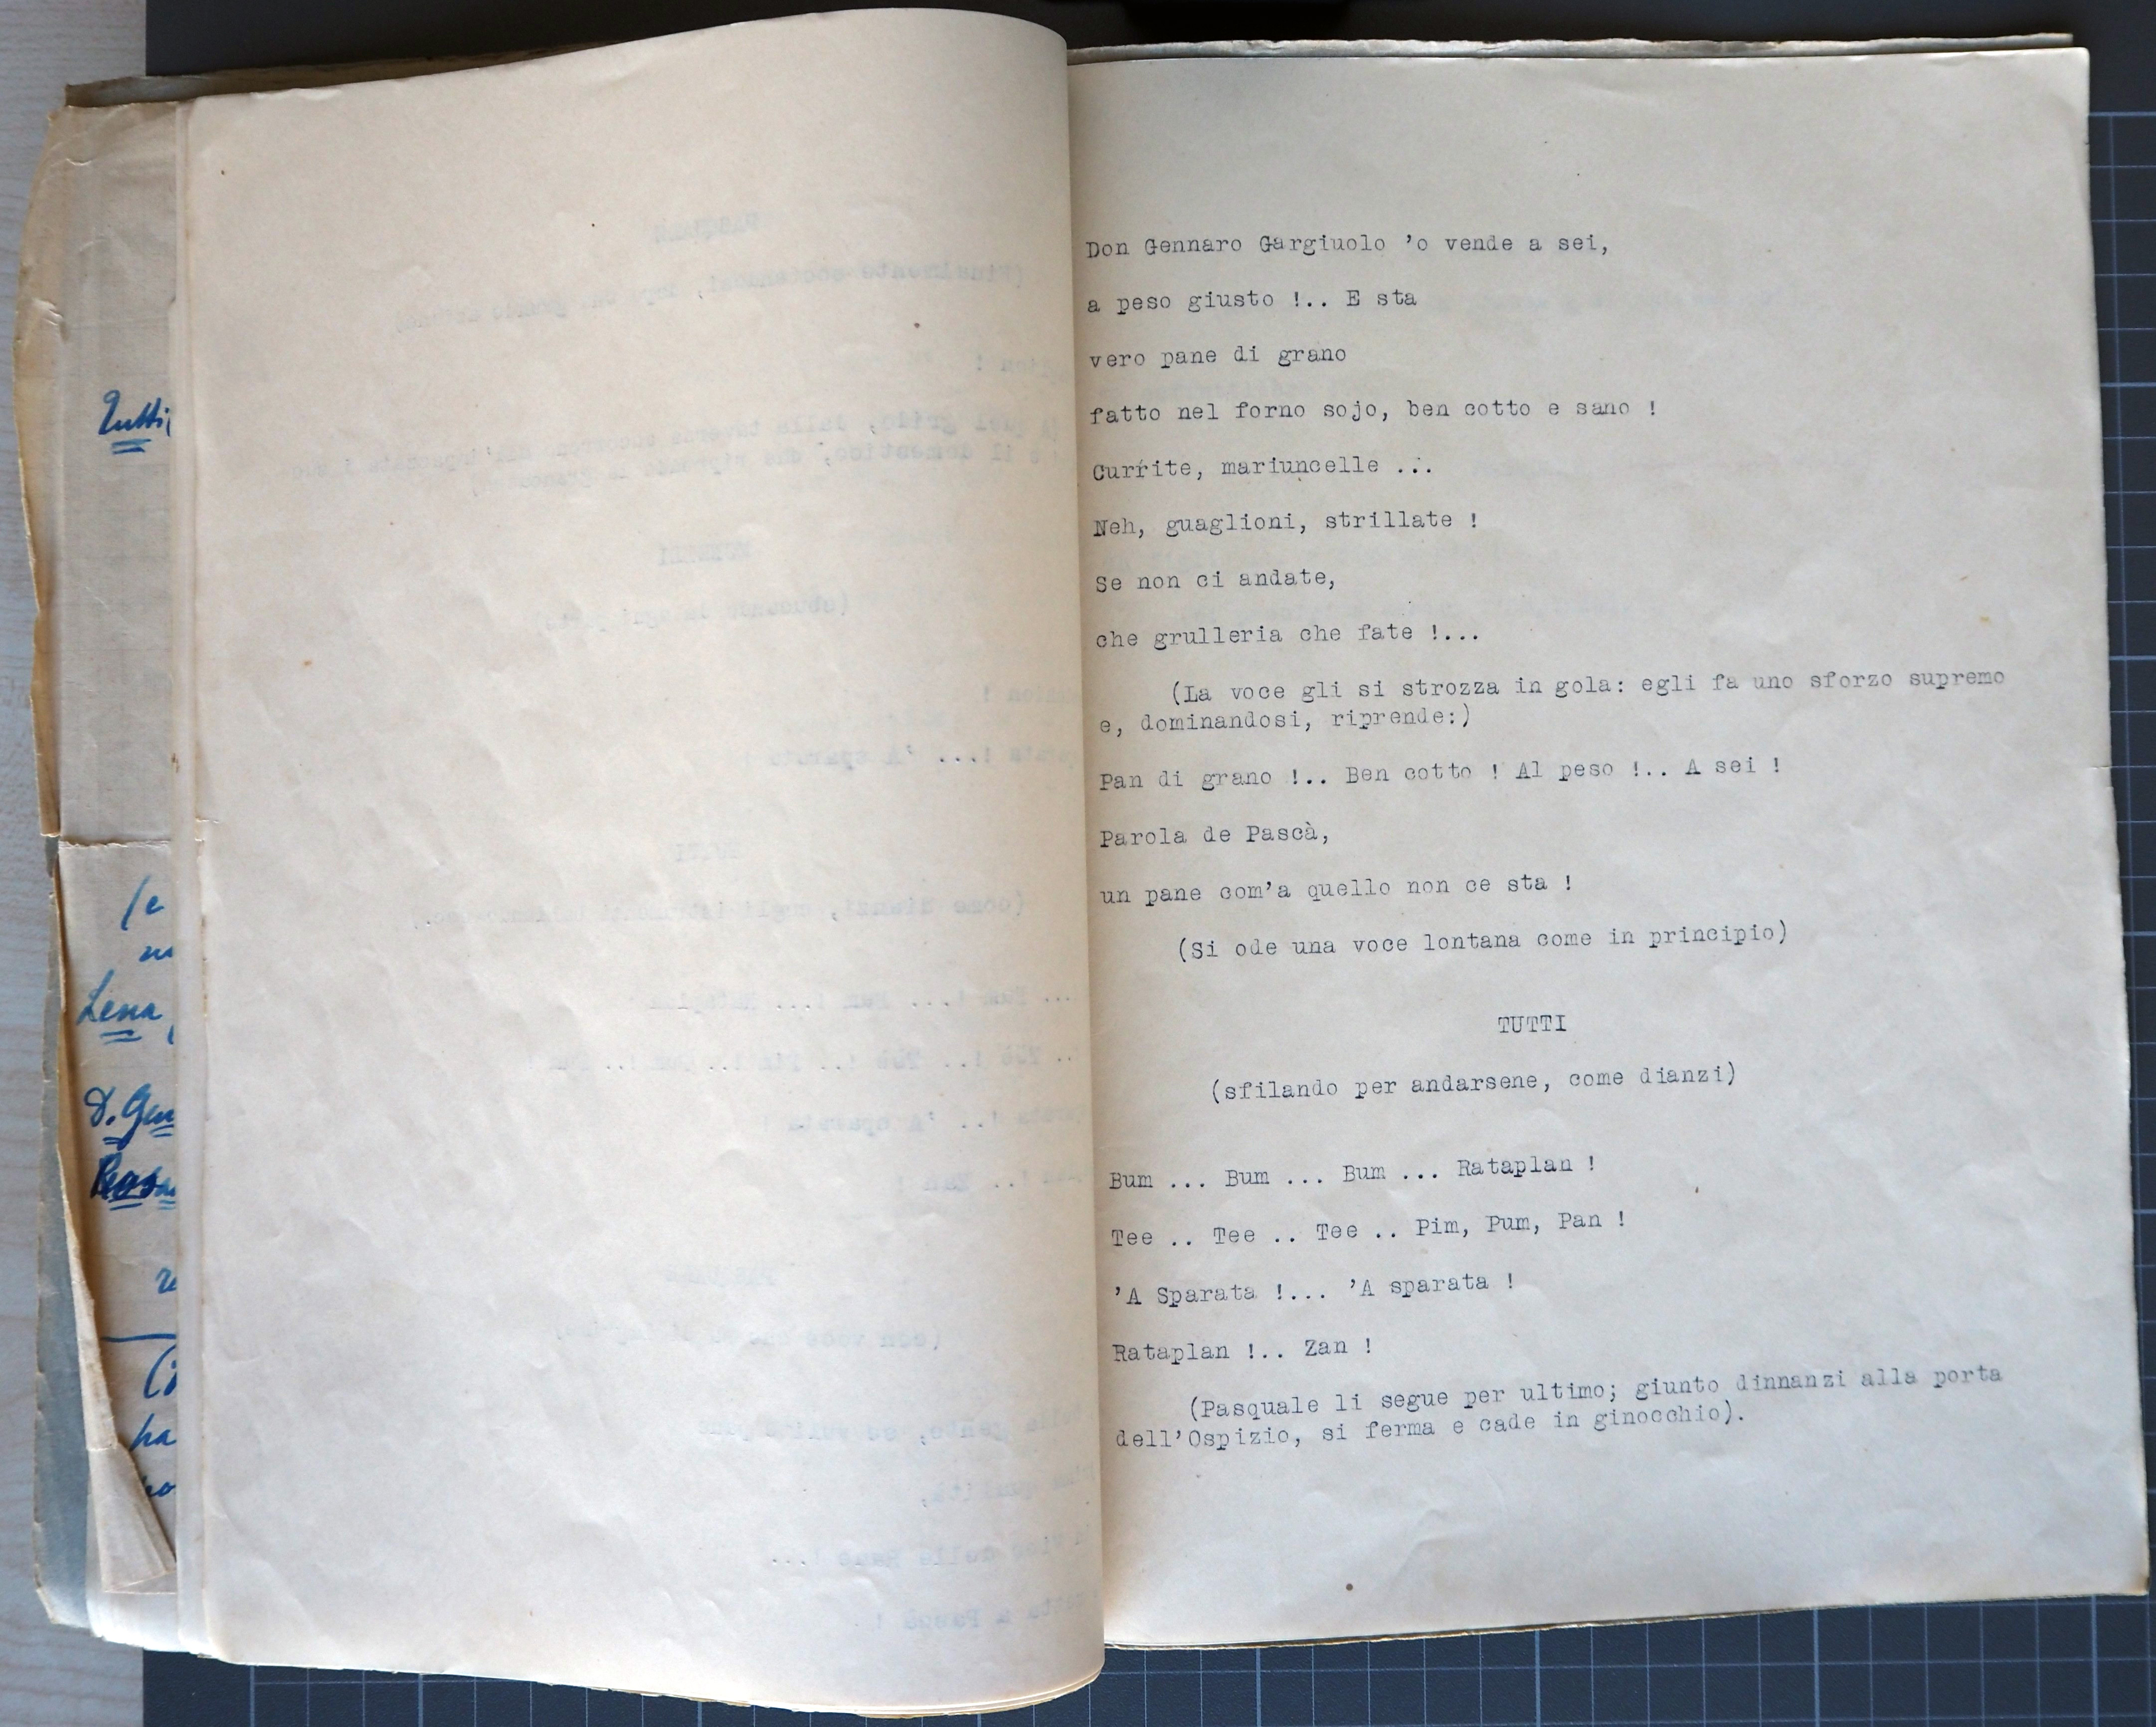 Tutti
(e
Lena
D. Gen
ha
Don Gennaro Gargiuolo 'o vende a sei,
a peso giusto !.. E sta
vero pane di grano
fatto nel forno sojo, ben cotto e sano !
Currite, mariuncelle ...
Neh, guaglioni, strillate !
Se non ci andate,
che grulleria che fate !...
(La voce gli si strozza in gola: egli fa uno sforzo supremo
e, dominandosi, riprende:)
Pan di grano !.. Ben cotto ! Al peso !.. A sei !
Parola de Pascà,
un pane com'a quello non ce sta !
(Si ode una voce lontana come in principio)
TUTTI
(sfilando per andarsene, come dianzi)
Bum ... Bum ... Bum ... Rataplan !
Tee .. Tee .. Tee .. Pim, Pum, Pan !
'A Sparata !... 'A sparata !
Rataplan !.. Zan !
(Pasquale li segue per ultimo; giunto dinnanzi alla porta
dell'Ospizio, si ferma e cade in ginocchio).